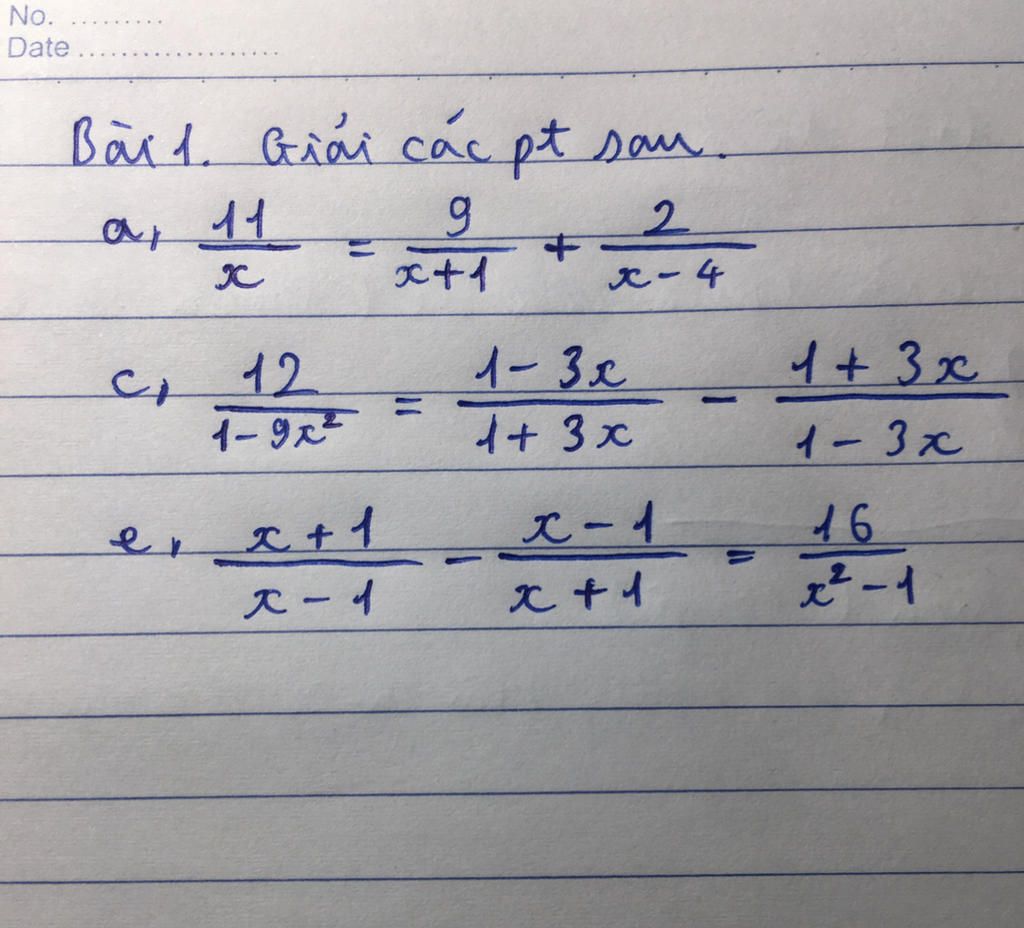 No. .........
Date ....................
Bài 1. Giải các pt sau.
a, 11/x = 9/(x+1) + 2/(x-4)
c, 12/(1-9x²) = (1-3x)/(1+3x) - (1+3x)/(1-3x)
e, (x+1)/(x-1) - (x-1)/(x+1) = 16/(x²-1)